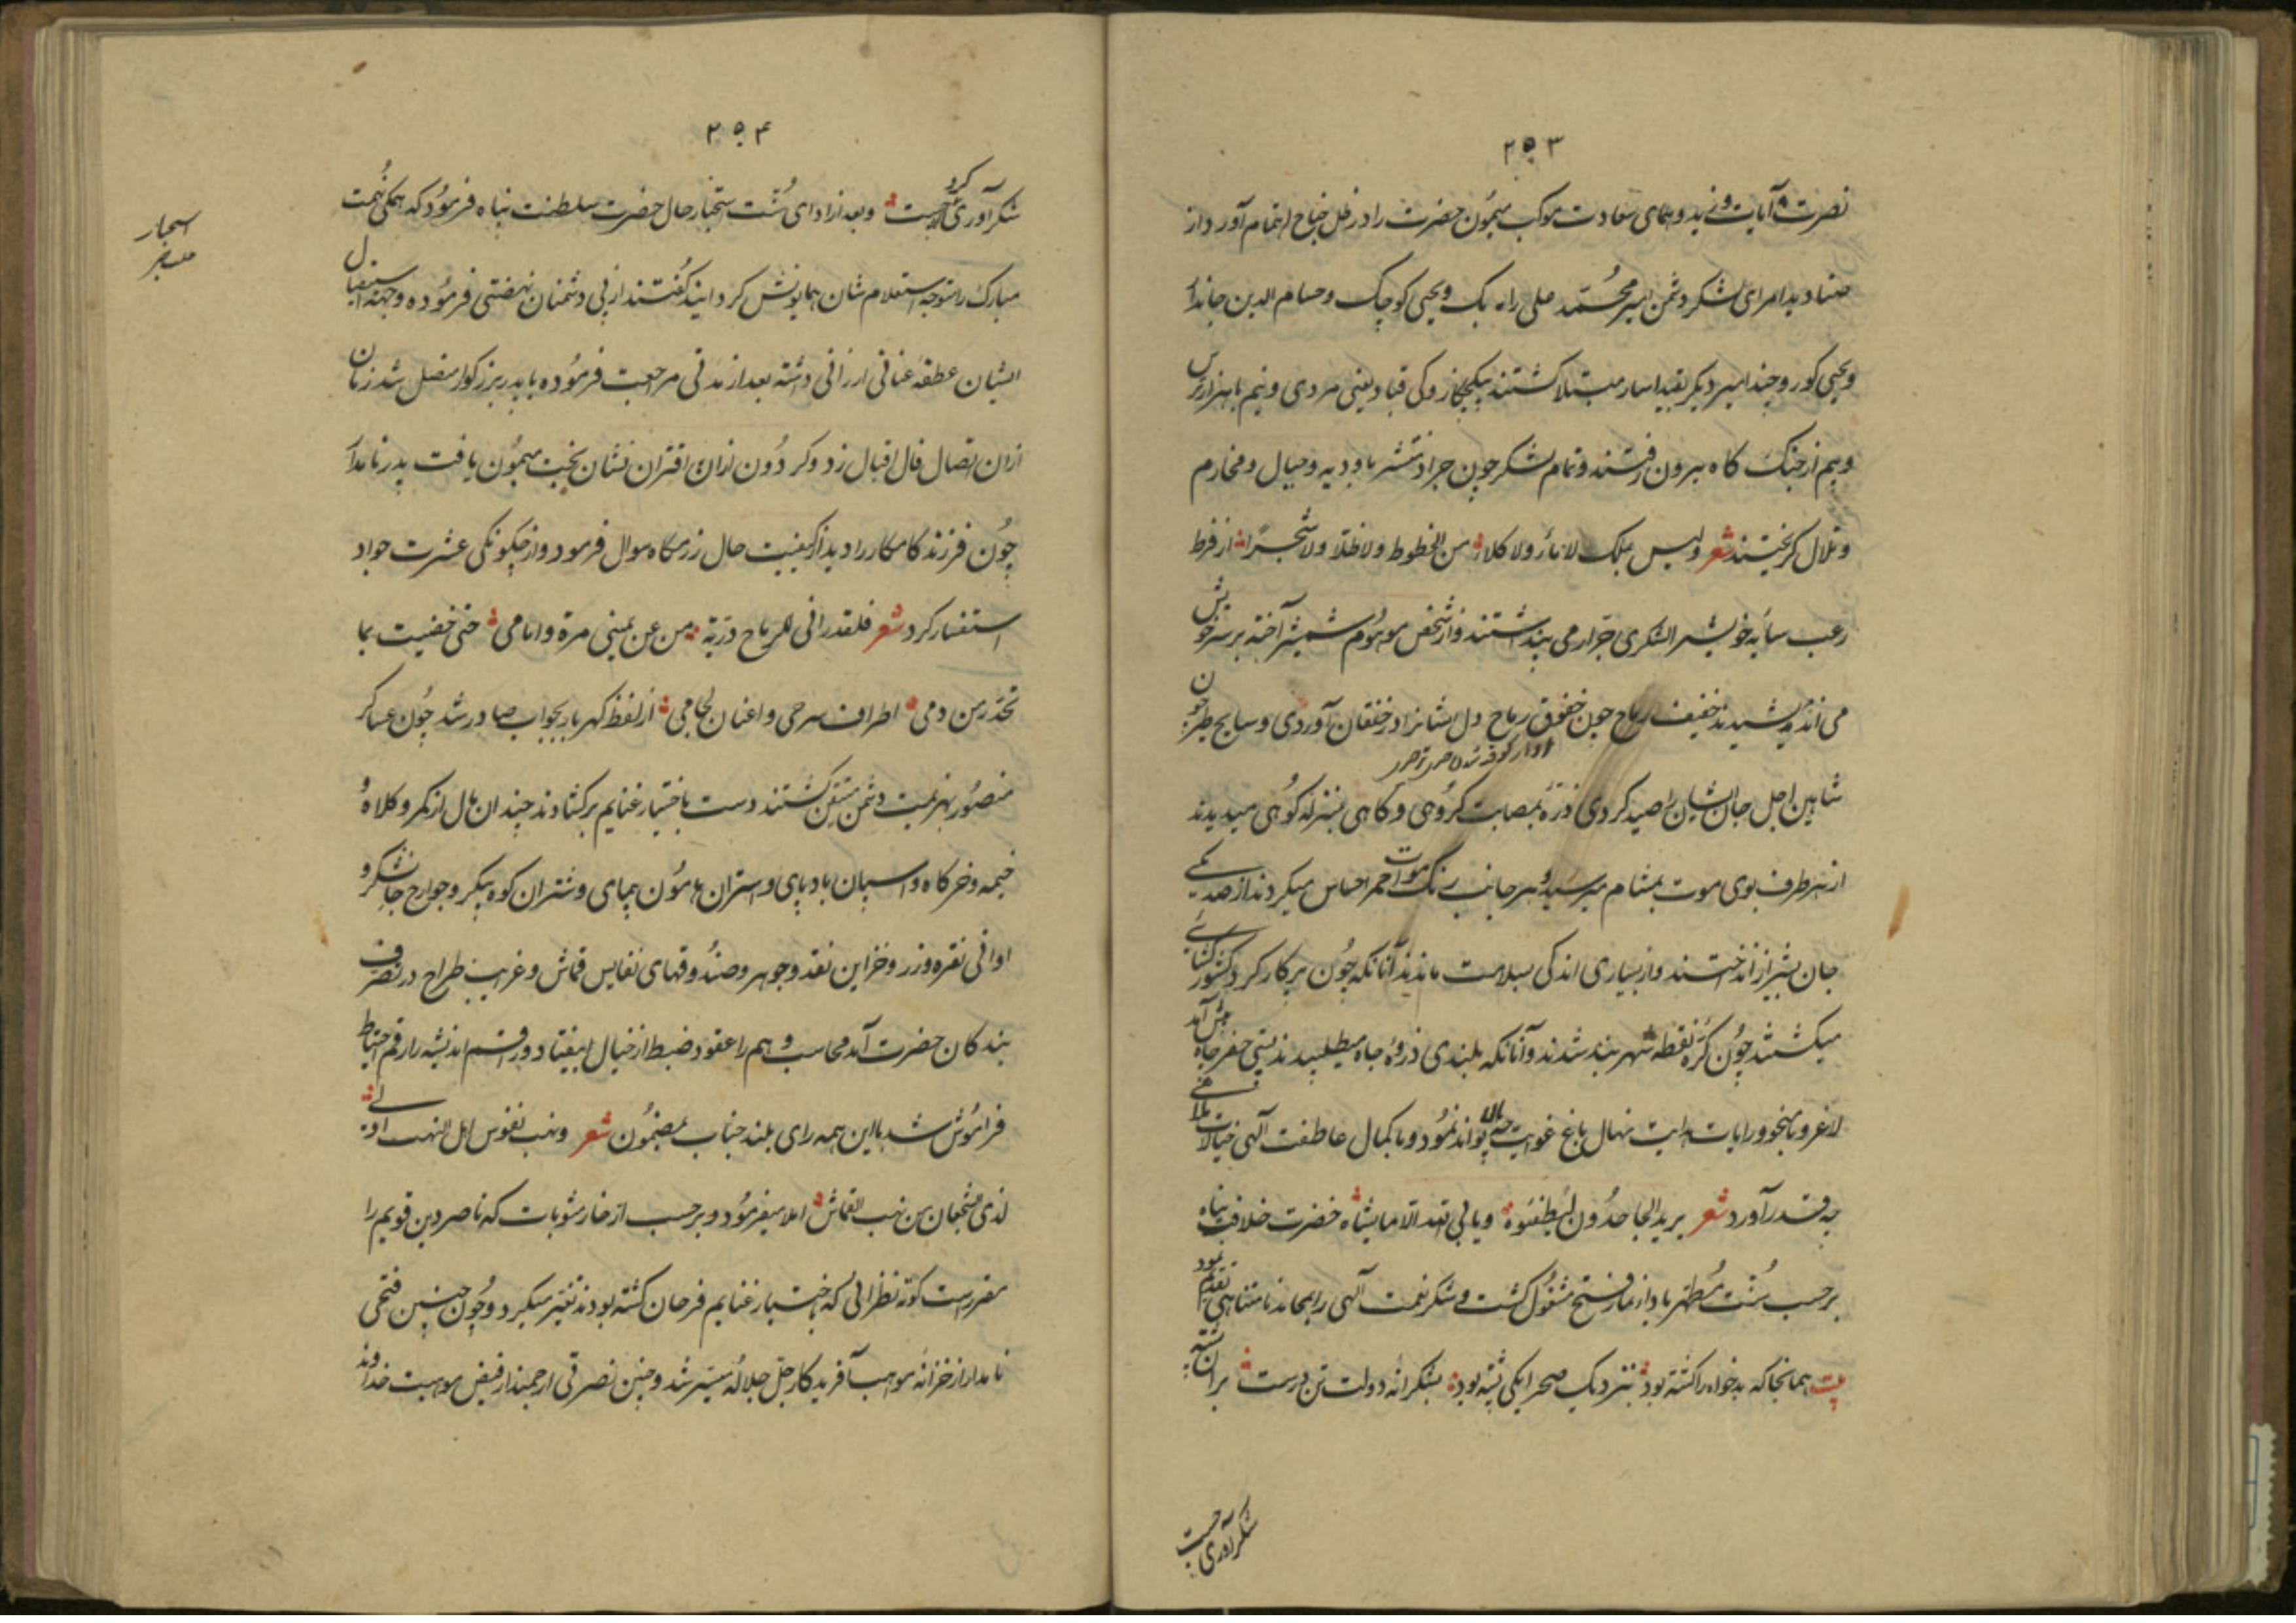 ۲۵۳
نصرت آیات وزید و همای سعادت موکب میمون حضرت را در ظل جناح اهتمام آورد از
صنادید امرای لشکر دشمن امیر محمد علی راه بک و یحیی کوچک و حسام الدین جاندار
و یحیی کور و چند امیر دیکر بقید اسار مبتلا کشتند و کی قباد یعنی مردی و نیم با هزار ترس
و بیم از جنک کاه بیرون رفتند و تمام لشکر چون جراد منتشر باودیه و جبال و مخارم
و تلال کریختند شعر ولیس بملک لا ماء ولا کلاء من الخطوط ولا ظلا ولا شجرا از فرط
رعب سایه خویش را لشکری جرار می پنداشتند و از شخص موهوم شمشیر آخته بر سر خویش
می اندیشیدند خفیف ریاح چون خفوق رماح دل ایشانرا در خفقان آوردی و سایح طیر چون
شاهین اجل جان ایشان را صید کردی ذره بمصابت کروهی و کاهی بمنزله کوهی میدیدند
از هر طرف بوی موت بمشام میرسید و هر جانب رنک موت احمر احساس میکردند از صد یکی
جان بشیراز انداختند و از بسیاری اندکی بسلامت ماندند آنانکه چون پرکار کرد کشور کشایی
میکشتند چون کره نقطه شهربند شدند و آنانکه بلندی ذروه جاه میطلبیدند پستی حفر چاه پیش آمد
لاغرو با نیخو و رایات هدایت نهال باغ غوایت چه بالا تواند نمود و با کمال عاطفت الهی خیالات ملاهی
چه قدر آورد شعر یرید الجاحدون لیطفئوه و یابی الله الا ما یشاه حضرت خلافت پناه
برحسب سنت مطهر بادای نماز فتح مشغول کشت و شکر نعمت الهی را بمحامد نامتناهی تقدیم نمود
بیت همانجا که بدخواه را کشته بود بنزدیک صحرا یکی پشته بود بشکرانه دولت تن درست بران پشته
شکرآوری جست
۲۵۴
شکرآوری کرد جست و بعد از ادای سنت ستخبار حال حضرت سلطنت پناه فرمود که همکی نهمت
مبارک را متوجه استعلام شان همایونش کردانید کفتند از پی دشمنان نهضتی فرموده وجهه استقبال
ایشان عطفه عنانی ارزانی داشته بعد از مدتی مراجعت فرموده با پدر بزرکوار متصل شد زمان
ازان اتصال فال اقبال زد و کردون ازان اقتران نشان بخت میمون یافت پدر نامدار
چون فرزند کامکار را دید از کیفیت حال رزمکاه سوال فرمود و از چکونکی عشرت جواد
استفسار کرد شعر فلقد رانی للرماح دریة من عن یمینی مرة و امامی حتی خضبت بما
تحدر من دمی اطراف سرجی و اعنان لجامی از لفظ کهربار بجواب صادر شد چون عساکر
منصور بهزیمت دشمن متیقن کشتند دست باختیار غنایم برکشادند چندان مال از کمر و کلاه و
خیمه و خرکاه و اسپان بادپای و استران هامون پیمای و شتران کوه پیکر و جوارح جانشکر و
اوانی نقره و زر و خزاین نقد و جوهر و صندوقهای نفایس قماش و غرایب طراح در تصرف
بندکان حضرت آمد محاسب وهم را عقود ضبط از خیال بیفتاد و راقم اندیشه را رقم احتیاط
فراموش شد با این همه رای بلند جناب بمضمون شعر ونهب نفوس اهل النهب اولی
لذی الشجعان من نهب القماش املا میفرمود و برحسب از خار مثوبات که ناصر دین قویم را
مقررست کوته نظرانی که باختیار غنایم فرحان کشته بودند تغییر میکرد و چون چنین فتحی
نامدار از خزانه مواهب آفریدکار جل جلاله میسر شد و چنین نصرتی ارجمند از فیض موهبت خداوند